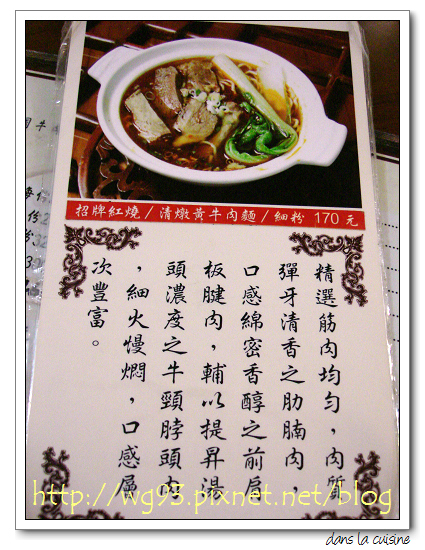 招牌紅燒/清燉黃牛肉麵/細粉 170 元
精選筋肉均勻，肉質
彈牙清香之肋腩肉，
口感綿密香醇之前肩
板腱肉，輔以提昇湯
頭濃度之牛頸脖頭肉
，細火慢燜，口感層
次豐富。
http://wg93.pixnet.net/blog
dans la cuisine